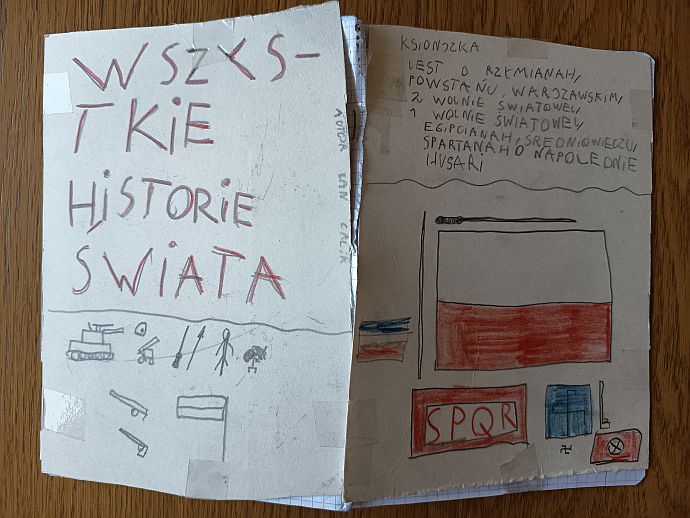 WSZYS-
TKIE
HISTORIE
ŚWIATA
AUTOR JAN
KSIONSZKA
JEST O RZYMIANAH,
POWSTAŃU WARSZAWSKIM,
2 WOLNIE ŚWIATOWEJ,
1 WOLNIE ŚWIATOWEJ,
EGIPCIANAH, ŚREDNIOWIECZU,
SPARTANAH O NAPOLEONIE
HUSARI
SPQR